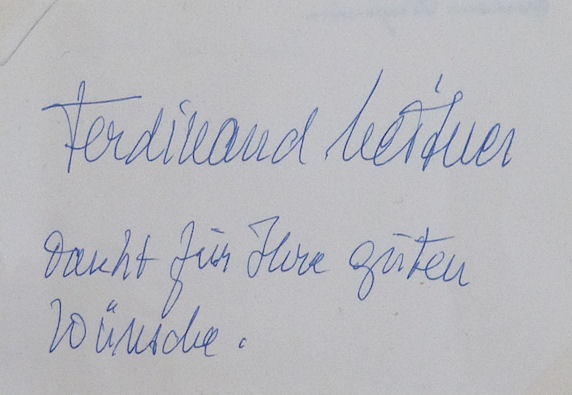 Ferdinand Leitner
dankt für Ihre guten
Wünsche.